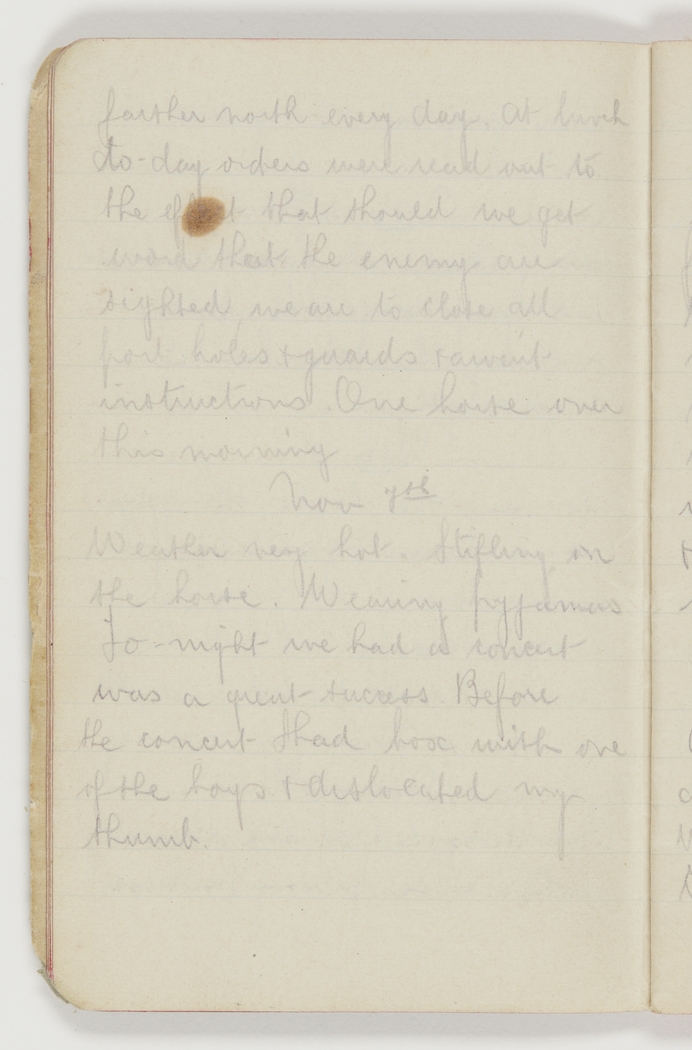 farther north every day. At lunch
to-day orders were read out to
the effect that should we get
word that the enemy are
sighted, we are to close all
port holes & guards & await
instructions. One horse over
this morning
Nov 7th
Weather very hot. Stifling on
the horse. Wearing pyjamas
To-night we had a concert
was a great success. Before
the concert I had box with one
of the boys & dislocated my
thumb.